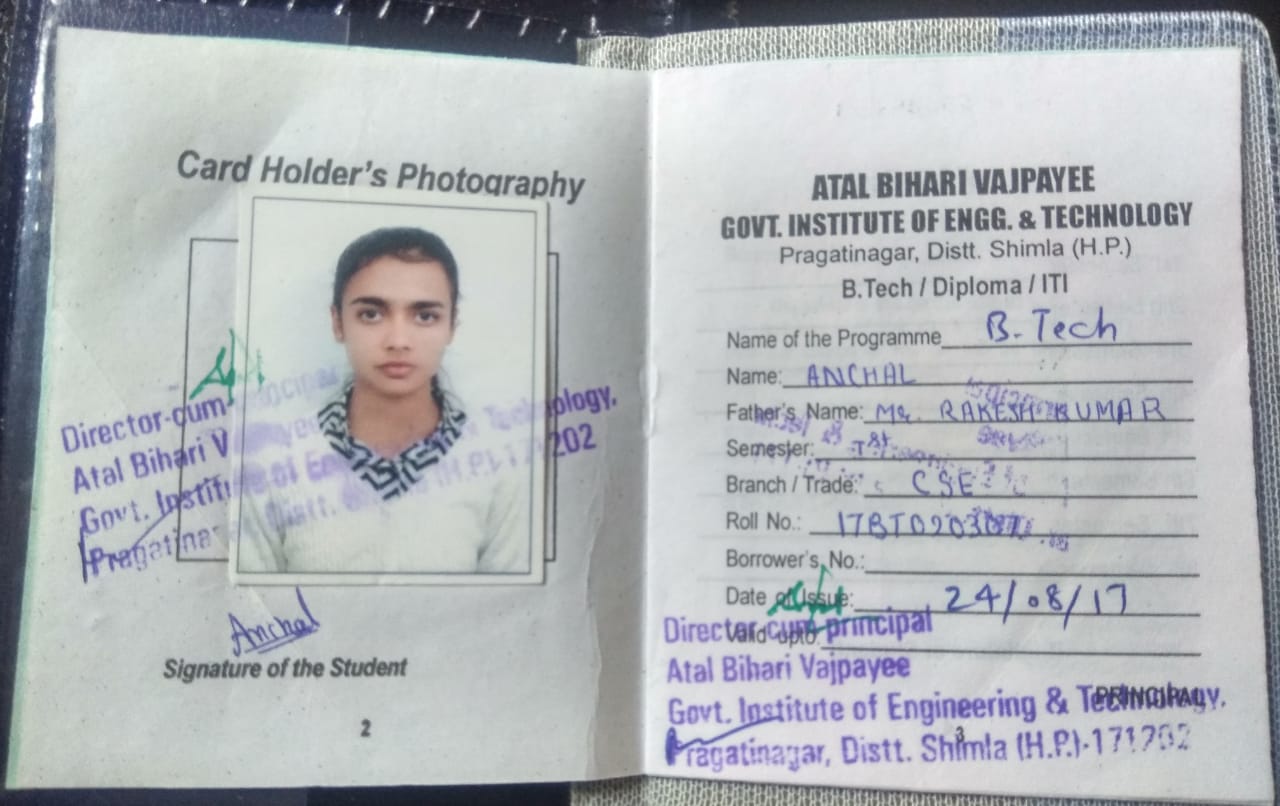 Card Holder's Photography
Director-cum-principal
Atal Bihari Vajpayee
Govt. Institute of Engineering & Technology.
Pragatinagar, Distt. Shimla (H.P.)-171202
Anchal
Signature of the Student
2
ATAL BIHARI VAJPAYEE
GOVT. INSTITUTE OF ENGG. & TECHNOLOGY
Pragatinagar, Distt. Shimla (H.P.)
B.Tech / Diploma / ITI
Name of the Programme B.Tech
Name: ANCHAL
Father's Name: Mr. RAKESH KUMAR
Semester: Ist
Branch / Trade: CSE
Roll No.: 17BT020307
Borrower's No.:
Date of Issue: 24/08/17
Valid upto:
PRINCIPAL
Director-cum-principal
Atal Bihari Vajpayee
Govt. Institute of Engineering & Technology.
Pragatinagar, Distt. Shimla (H.P.)-171202
3